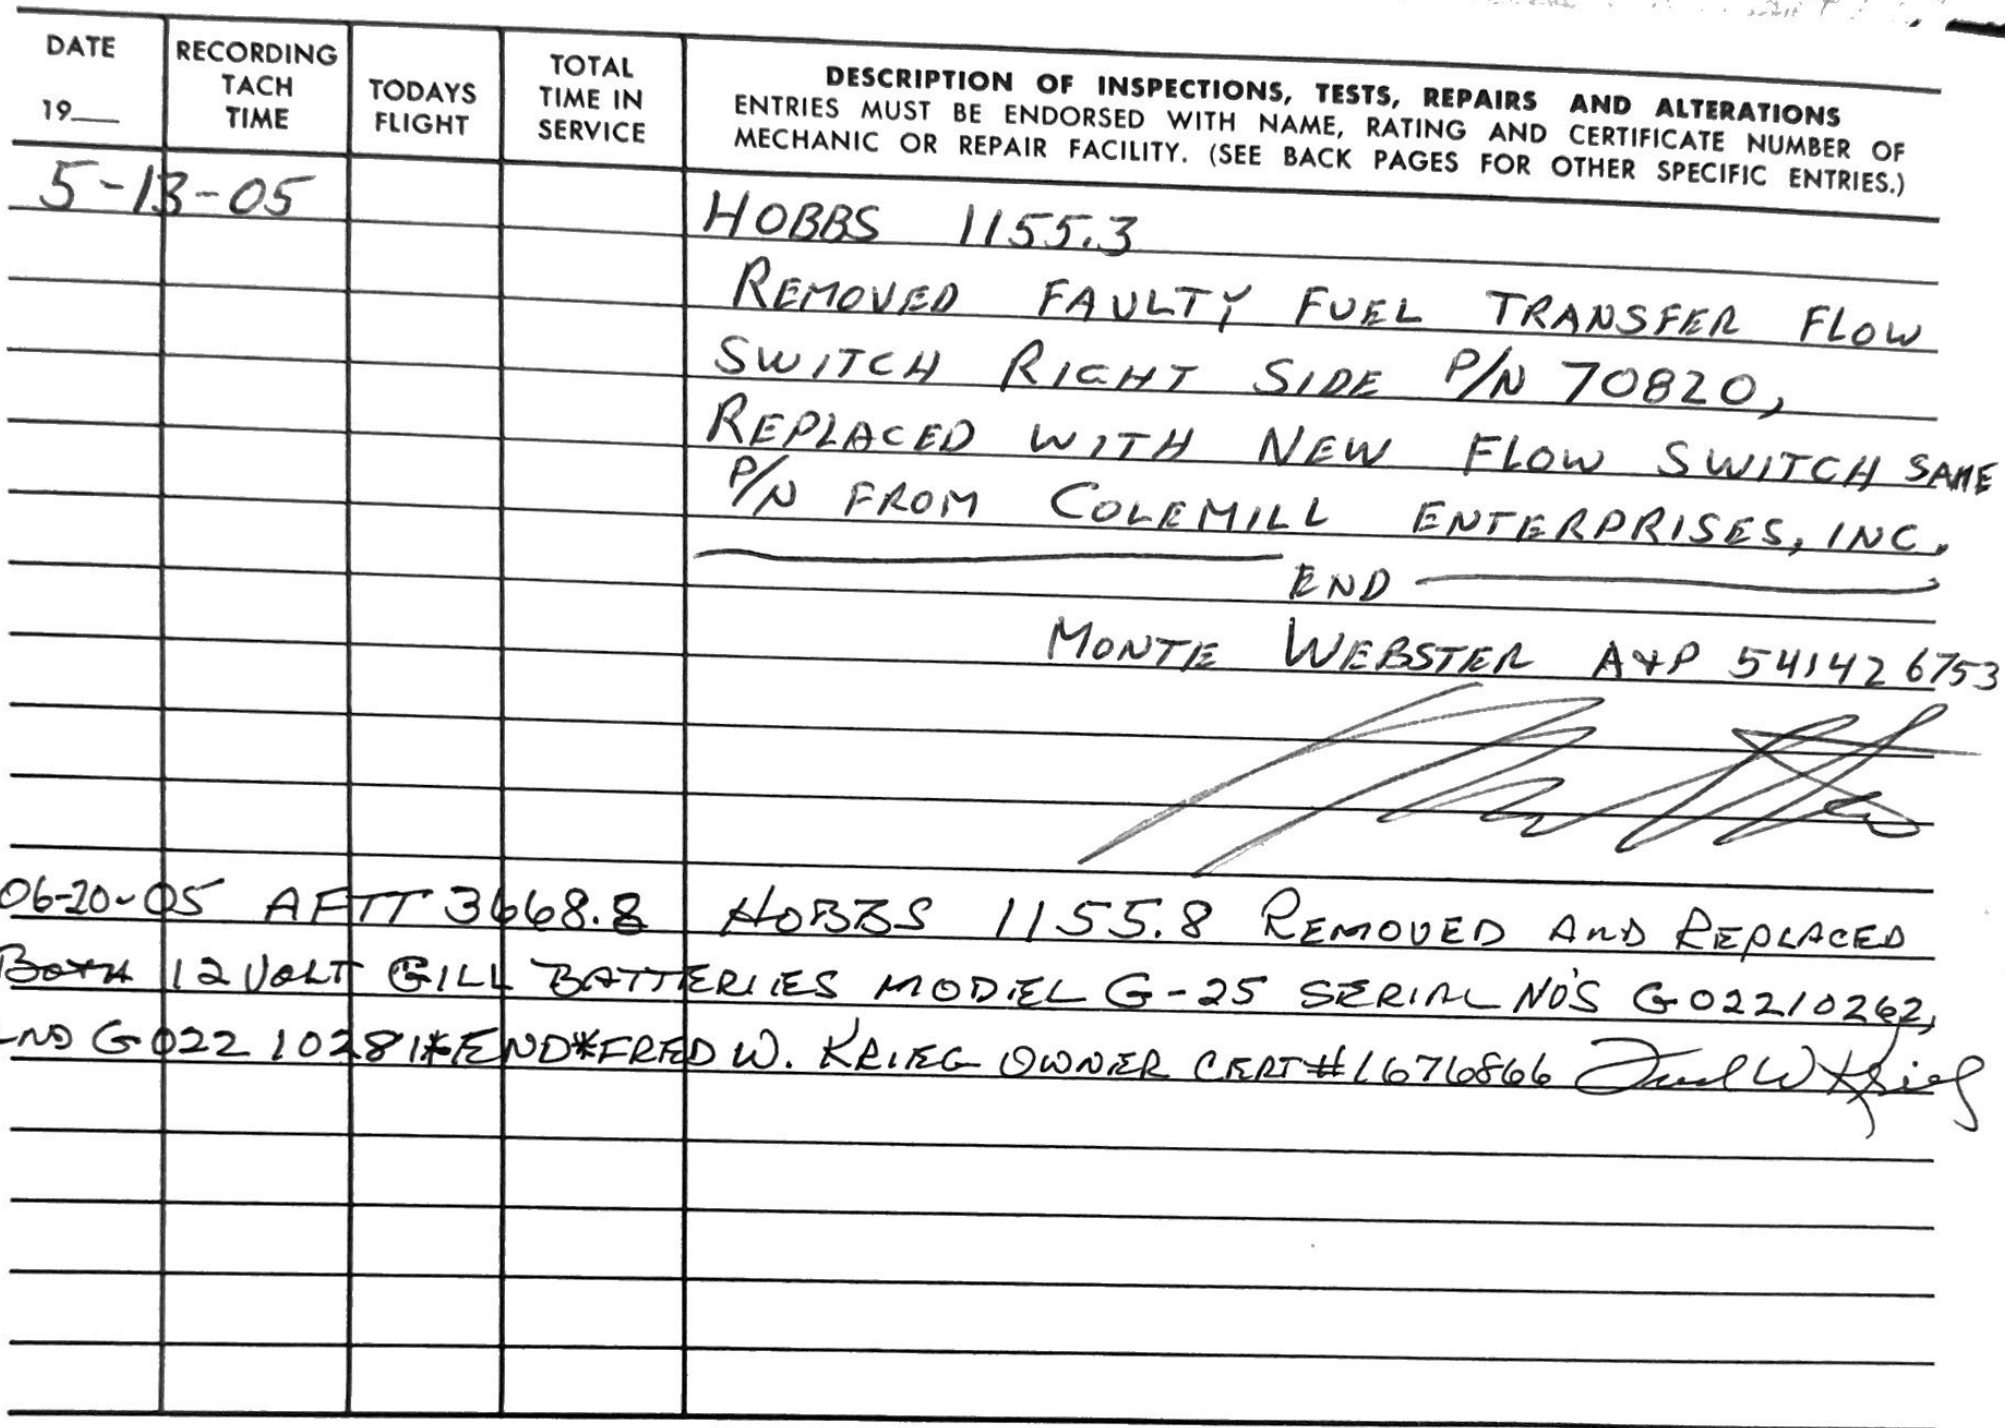 DATE
19__
RECORDING
TACH
TIME
TODAYS
FLIGHT
TOTAL
TIME IN
SERVICE
DESCRIPTION OF INSPECTIONS, TESTS, REPAIRS AND ALTERATIONS
ENTRIES MUST BE ENDORSED WITH NAME, RATING AND CERTIFICATE NUMBER OF
MECHANIC OR REPAIR FACILITY. (SEE BACK PAGES FOR OTHER SPECIFIC ENTRIES.)
5-13-05
HOBBS 1155.3
REMOVED FAULTY FUEL TRANSFER FLOW
SWITCH RIGHT SIDE P/N 70820,
REPLACED WITH NEW FLOW SWITCH SAME
P/N FROM COLEMILL ENTERPRISES, INC.
END
MONTE WEBSTER A&P 541426753
06-20-05 AFTT 3668.8 HOBBS 1155.8 REMOVED AND REPLACED
BOTH 12 VOLT GILL BATTERIES MODEL G-25 SERIAL NO'S G02210262,
AND G02210281*END*FRED W. KRIEG OWNER CERT#1676866 Fred W Krieg